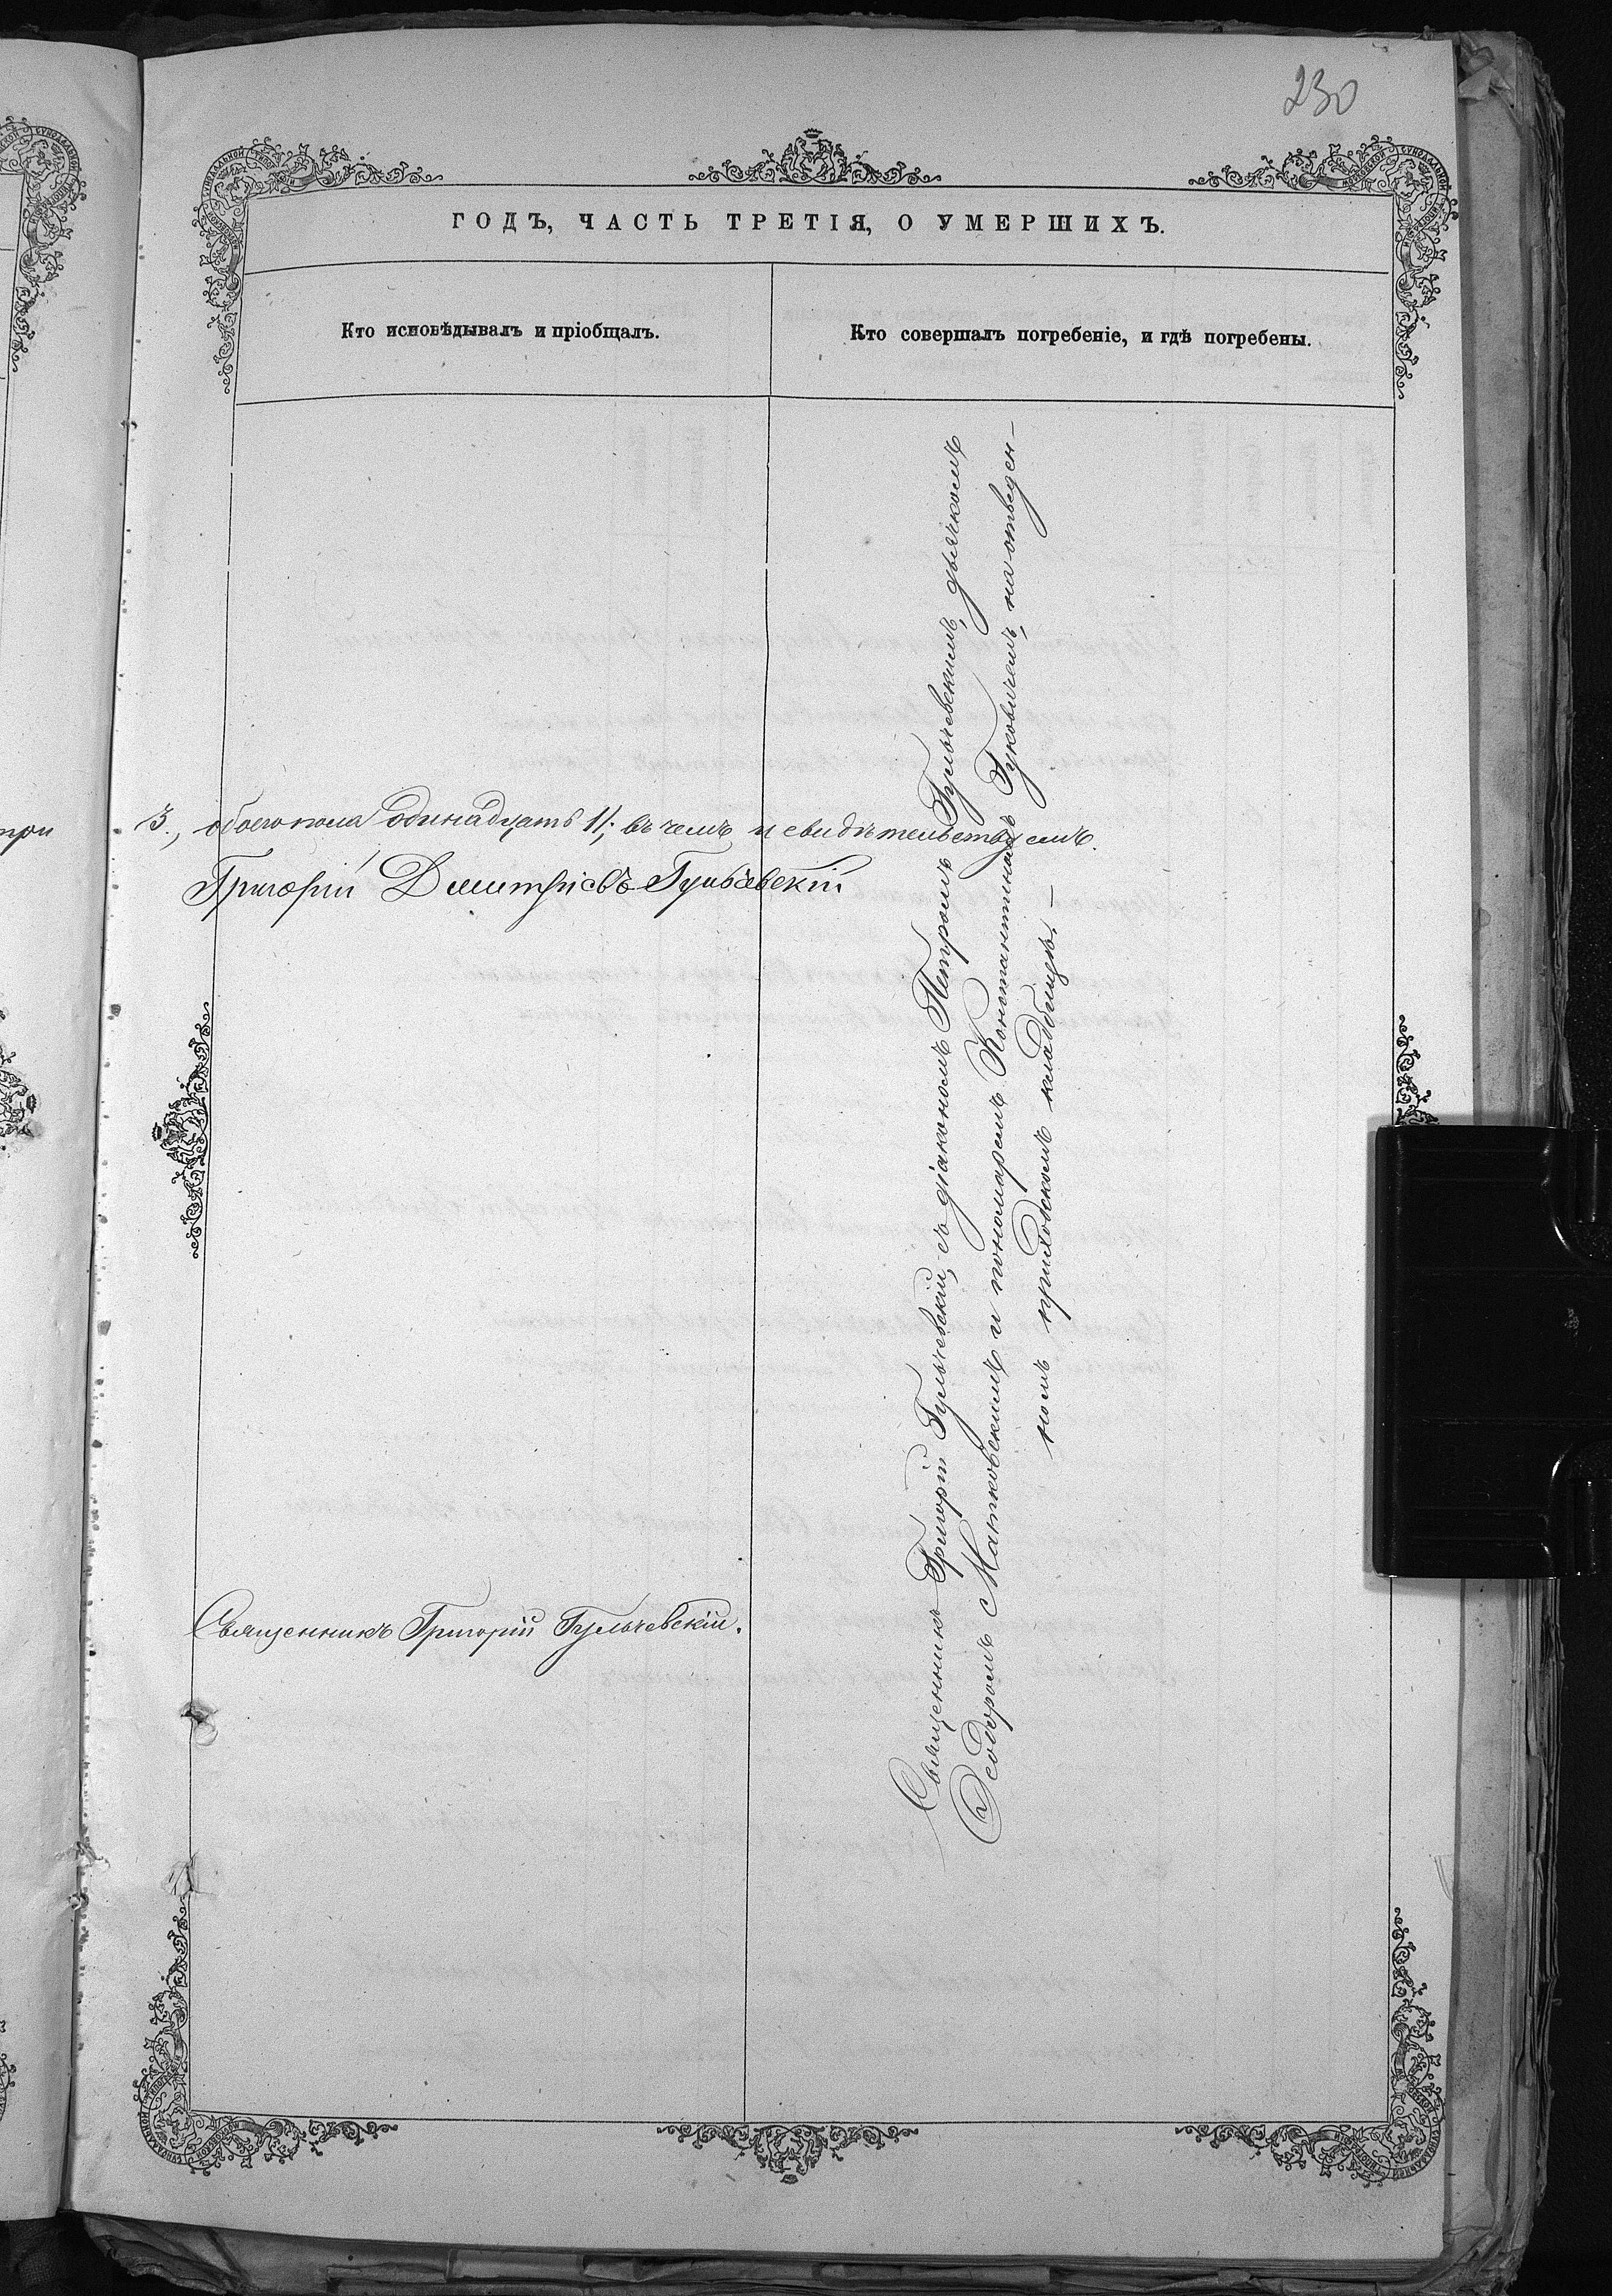 230
ГОДЪ, ЧАСТЬ ТРЕТІЯ, О УМЕРШИХЪ.
Кто исповѣдывалъ и пріобщалъ.
Кто совершалъ погребеніе, и гдѣ погребены.
при
3., обоего пола одинадцать 11; въ чемъ и свидѣтельствуемъ.
Григорій Димитріевъ Гульчевскій
Священникъ Григорій Гульчевскій.
Священникъ Григорій Гульчевскій, съ діакономъ Петромъ Гульчевскимъ, дьячкомъ
Ѳеодоромъ Матковскимъ и пономаремъ Константиномъ Гуковичемъ, на отведен-
номъ приходскомъ кладбищѣ. —